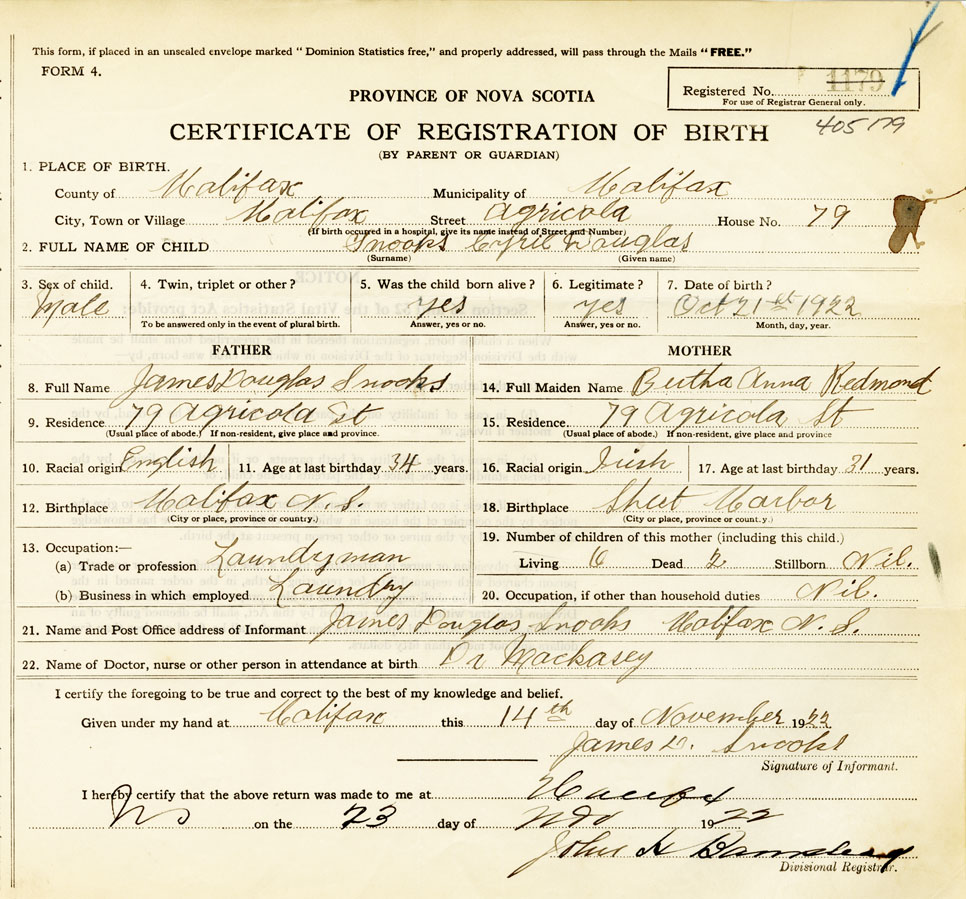 This form, if placed in an unsealed envelope marked "Dominion Statistics free," and properly addressed, will pass through the Mails "FREE."
FORM 4.
Registered No. 1179
For use of Registrar General only.
PROVINCE OF NOVA SCOTIA
CERTIFICATE OF REGISTRATION OF BIRTH
405179
(BY PARENT OR GUARDIAN)
1. PLACE OF BIRTH.
County of Halifax Municipality of Halifax
City, Town or Village Halifax Street Agricola House No. 79
(If birth occurred in a hospital, give its name instead of Street and Number)
2. FULL NAME OF CHILD Snooks Cyril Douglas
(Surname) (Given name)
3. Sex of child. 4. Twin, triplet or other? 5. Was the child born alive? 6. Legitimate? 7. Date of birth?
Male yes yes Oct 21st 1922
To be answered only in the event of plural birth. Answer, yes or no. Answer, yes or no. Month, day, year.
FATHER MOTHER
8. Full Name James Douglas Snooks 14. Full Maiden Name Bertha Anna Redmond
9. Residence 79 Agricola St 15. Residence 79 Agricola St
(Usual place of abode.) If non-resident, give place and province. (Usual place of abode.) If non-resident, give place and province
10. Racial origin English 11. Age at last birthday 34 years. 16. Racial origin Irish 17. Age at last birthday 31 years.
12. Birthplace Halifax N.S. 18. Birthplace Sheet Harbor
(City or place, province or country.) (City or place, province or country.)
13. Occupation:— 19. Number of children of this mother (including this child.)
(a) Trade or profession Laundryman Living 6 Dead 2 Stillborn Nil.
(b) Business in which employed Laundry 20. Occupation, if other than household duties Nil.
21. Name and Post Office address of Informant James Douglas Snooks Halifax N.S.
22. Name of Doctor, nurse or other person in attendance at birth Dr Mackasey
I certify the foregoing to be true and correct to the best of my knowledge and belief.
Given under my hand at Halifax this 14th day of November 1922
James D. Snooks
Signature of Informant.
I hereby certify that the above return was made to me at Halifax
NS on the 23 day of Nov 1922
John H
Divisional Registrar.